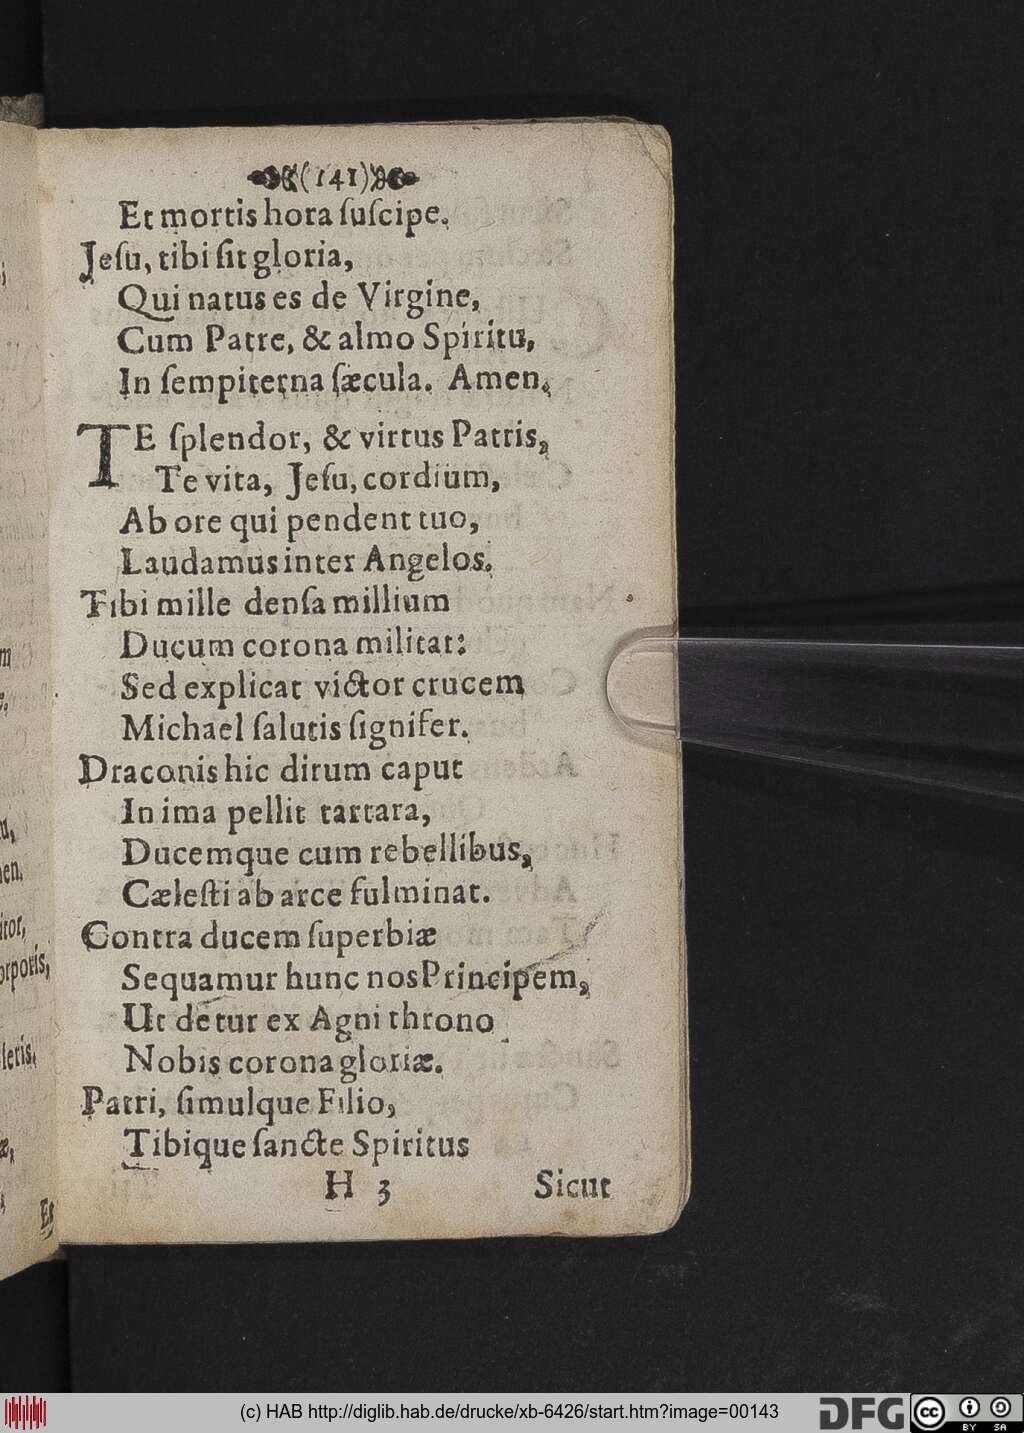 (141)
Et mortis hora ſuſcipe.
Jeſu, tibi ſit gloria,
Qui natus es de Virgine,
Cum Patre, & almo Spiritu,
In ſempiterna ſæcula. Amen.
TE ſplendor, & virtus Patris,
Te vita, Jeſu, cordium,
Ab ore qui pendent tuo,
Laudamus inter Angelos.
Tibi mille denſa millium
Ducum corona militat:
Sed explicat victor crucem
Michael ſalutis ſignifer.
Draconis hic dirum caput
In ima pellit tartara,
Ducemque cum rebellibus,
Cæleſti ab arce fulminat.
Contra ducem ſuperbiæ
Sequamur hunc nos Principem,
Ut detur ex Agni throno
Nobis corona gloriæ.
Patri, ſimulque Filio,
Tibique ſancte Spiritus
H 3 Sicut
(c) HAB http://diglib.hab.de/drucke/xb-6426/start.htm?image=00143
DFG
cc BY SA